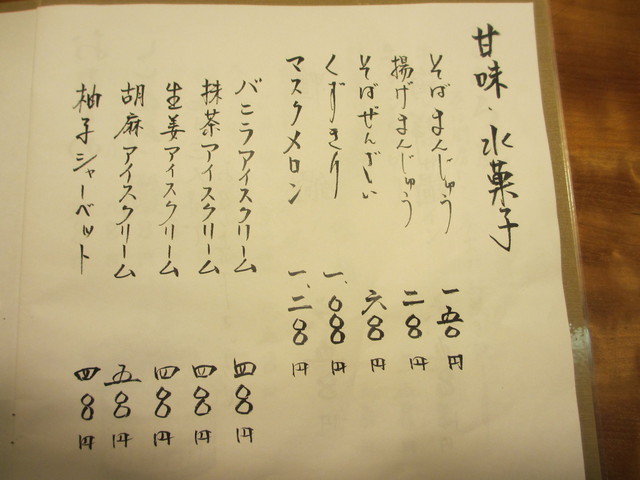 甘味・水菓子
そばまんじゅう 一五〇円
揚げまんじゅう 二〇〇円
そばぜんざい 六〇〇円
くずきり 一、〇〇〇円
マスクメロン 一、二〇〇円
バニラアイスクリーム 四〇〇円
抹茶アイスクリーム 四〇〇円
生姜アイスクリーム 四〇〇円
胡麻アイスクリーム 五〇〇円
柚子シャーベット 四〇〇円